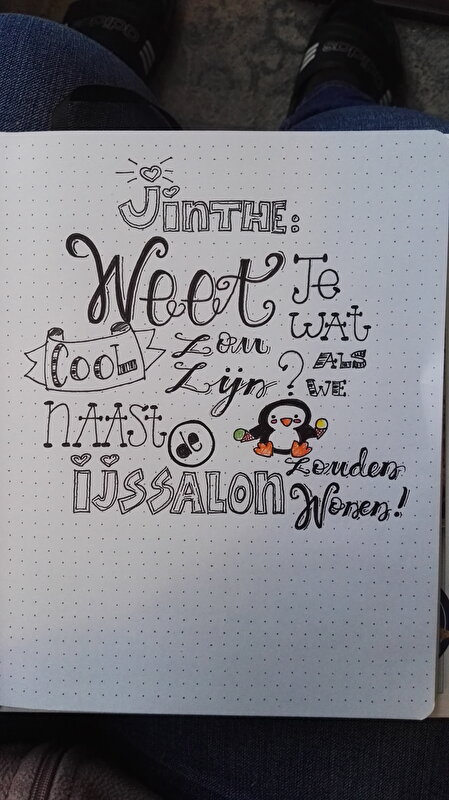 Jinthe:
Weet Je
wat
Cool zou
zijn? als
we
naast de
zouden
ijssalon
wonen!
adidas
adidas